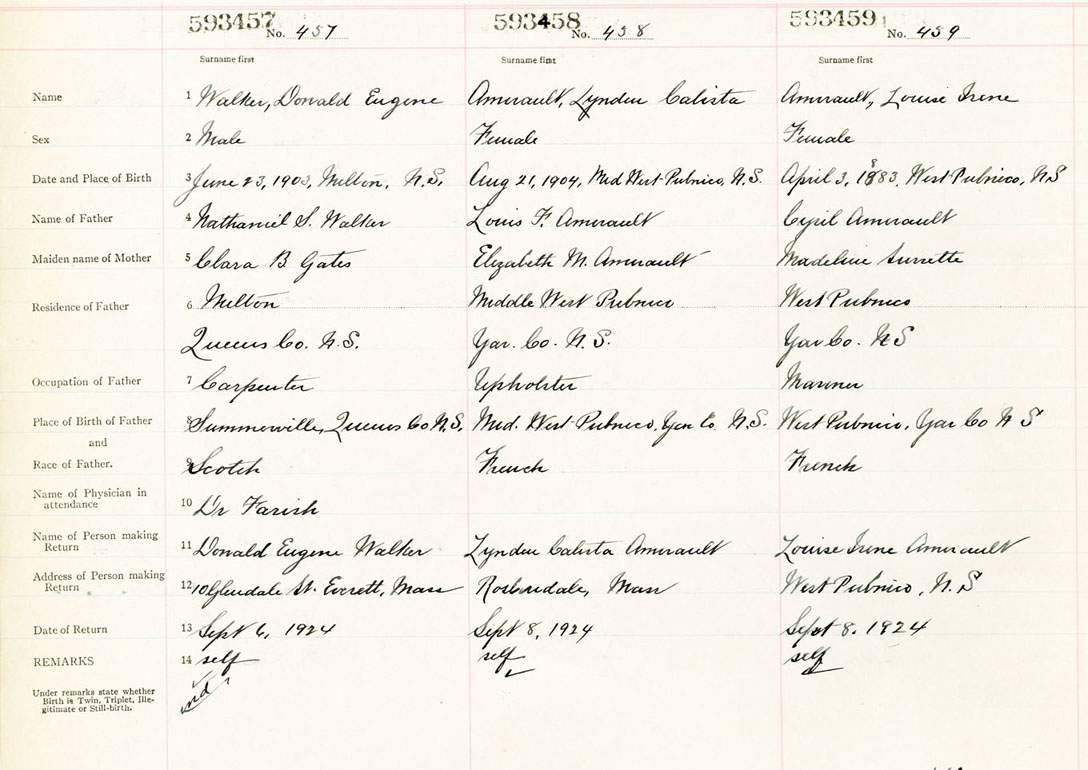 593457 No. 457 593458 No. 458 593459 No. 459
Surname first Surname first Surname first
Name 1 Walker, Donald Eugene Amirault, Lyndeu Calista Amirault, Louise Irene
Sex 2 Male Female Female
Date and Place of Birth 3 June 23, 1903, Milton, N.S. Aug 21, 1904, Mid West Pubnico, N.S. April 3, 1883, West Pubnico, NS
Name of Father 4 Nathaniel S. Walker Louis F. Amirault Cyril Amirault
Maiden name of Mother 5 Clara B Gates Elizabeth M. Amirault Madeline Surrette
Residence of Father 6 Milton Middle West Pubnico West Pubnico
Queens Co. N.S. Yar. Co. N.S. Yar Co. NS
Occupation of Father 7 Carpenter Upholster Mariner
Place of Birth of Father 8 Summerville, Queens Co N.S. Mid. West Pubnico, Yar Co. N.S. West Pubnico, Yar Co N S
and
Race of Father. 9 Scotch French French
Name of Physician in
attendance 10 Dr Farish
Name of Person making
Return 11 Donald Eugene Walker Lyndeu Calista Amirault Louise Irene Amirault
Address of Person making
Return 12 10 Glendale St. Everett, Mass Roslindale, Mass West Pubnico, N.S
Date of Return 13 Sept 6, 1924 Sept 8, 1924 Sept 8. 1924
REMARKS 14 self self self
Under remarks state whether
Birth is Twin, Triplet, Ille-
gitimate or Still-birth.